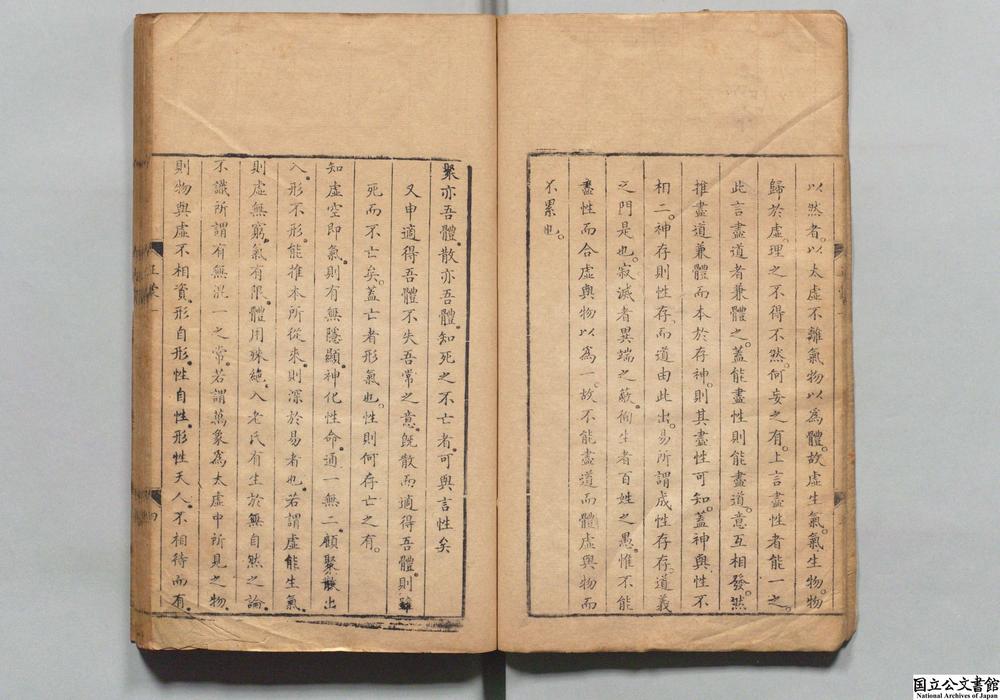 以然者。以太虛不離氣物以為體。故虛生氣。氣生物。物
歸於虛。理之不得不然。何妄之有。上言盡性者能一之。
此言盡道者兼體之。蓋能盡性則能盡道。意互相發。然
推盡道兼體而本於存神。則其盡性可知。蓋神與性不
相二。神存則性存。而道由此出。易所謂成性存存。道義
之門是也。寂滅者異端之蔽。徇生者百姓之愚。惟不能
盡性而合虛與物以為一。故不能盡道而體虛與物而
不累也。
聚亦吾體。散亦吾體。知死之不亡者。可與言性矣
又申適得吾體不失吾常之意。既散而適得吾體。則雖
死而不亡矣。蓋亡者形氣也。性則何存亡之有。
知虛空即氣。則有無隱顯。神化性命。通一無二。顧聚散出
入形不形。能推本所從來。則深於易者也。若謂虛能生氣。
則虛無窮。氣有限。體用殊絶。入老氏有生於無自然之論。
不識所謂有無混一之常。若謂萬象為太虛中所見之物。
則物與虛不相資。形自形。性自性。形性天人。不相待而有。
正蒙一
四
国立公文書館
National Archives of Japan